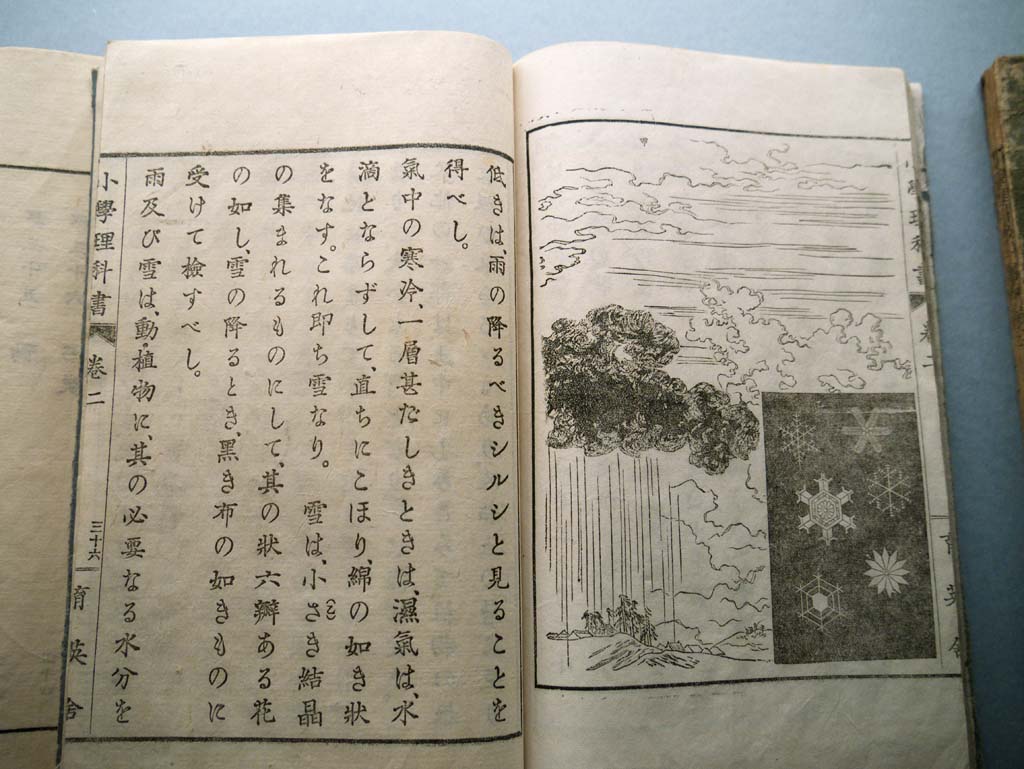 甲
小學理科書
卷二
育英舍
低きは、雨の降るべきシルシと見ることを
得べし。
氣中の寒冷、一層甚だしきときは、濕氣は、水
滴とならずして、直ちにこほり、綿の如き狀
をなす。これ即ち雪なり。 雪は、小さき結晶
の集まれるものにして、其の狀六瓣ある花
の如し、雪の降るとき、黑き布の如きものに
受けて檢すべし。
雨及び雪は、動・植物に、其の必要なる水分を
小學理科書
卷二
三十六
育英舍